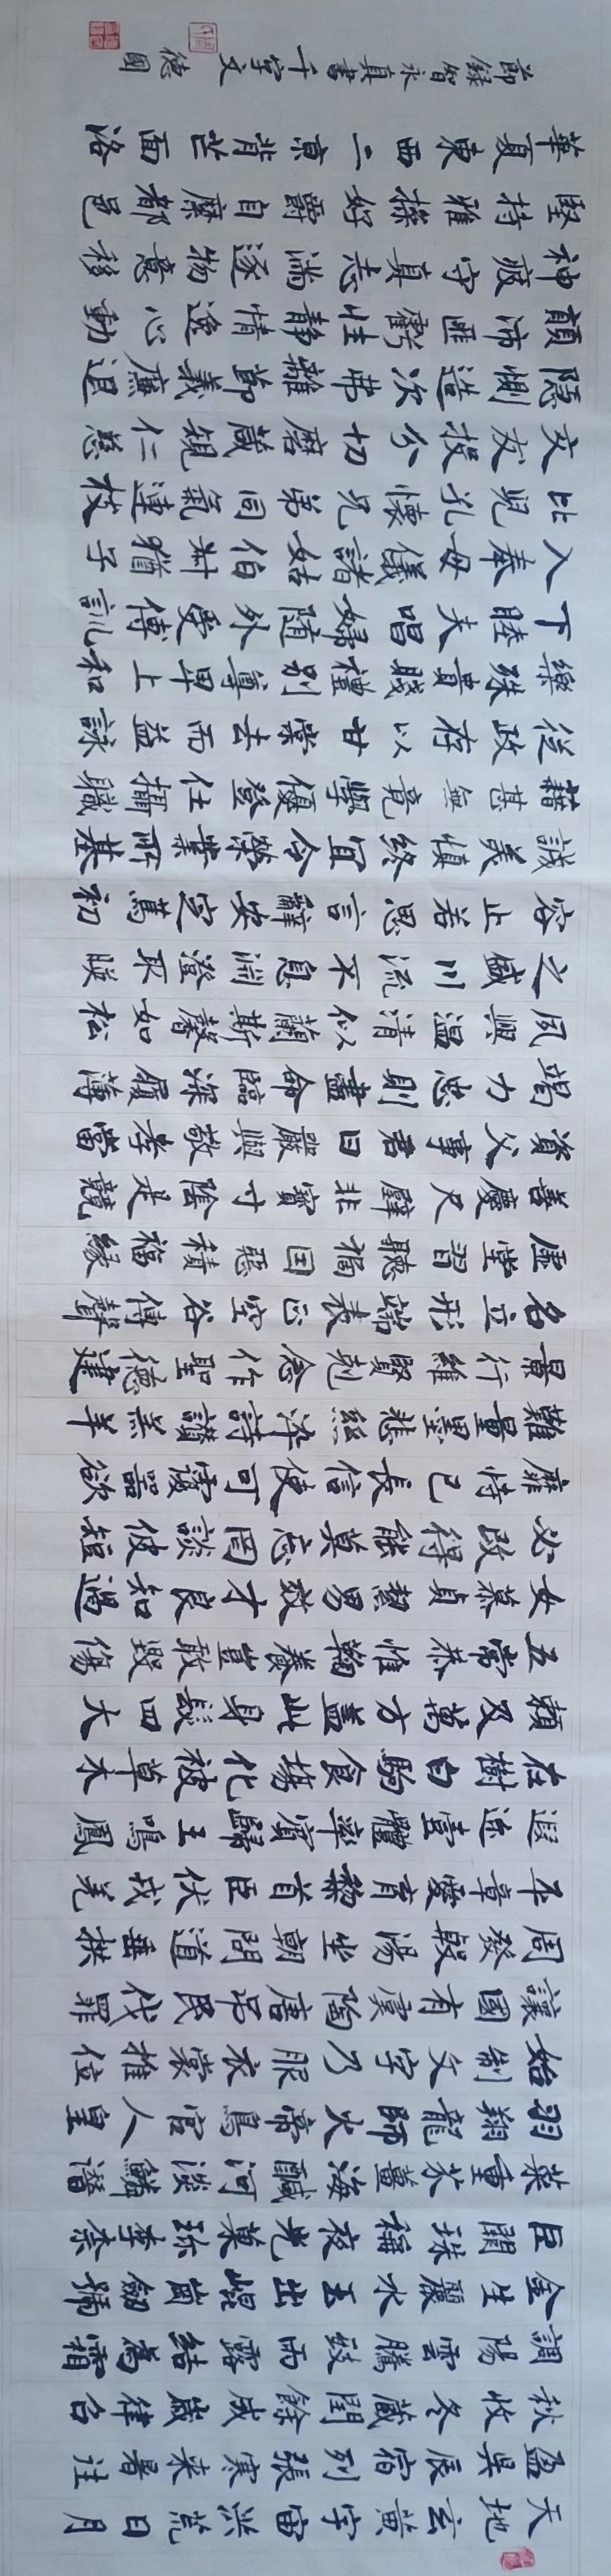 天地玄黃宇宙洪荒日月
盈昃辰宿列張寒来暑往
秋收冬藏閏餘成歲律呂
調陽雲騰致雨露結為霜
金生麗水玉出崐崗劒號
巨闕珠稱夜光菓珍李柰
菜重芥薑海鹹河淡鱗潛
羽翔龍師火帝鳥官人皇
始制文字乃服衣裳推位
讓國有虞陶唐吊民伐罪
周發殷湯坐朝問道垂拱
平章愛育黎首臣伏戎羌
遐迩壹體率賓歸王鳴鳳
在樹白駒食場化被草木
賴及萬方蓋此身髮四大
五常恭惟鞠養豈敢毀傷
女慕貞絜男效才良知過
必改得能莫忘罔談彼短
靡恃己長信使可覆器欲
難量墨悲絲淬詩讚羔羊
景行維賢剋念作聖德建
名立形端表正空谷傳聲
虛堂習聽禍因惡積福緣
善慶尺璧非寶寸陰是競
資父事君曰嚴與敬孝當
竭力忠則盡命臨深履薄
夙興溫清似蘭斯馨如松
之盛川流不息淵澄取暎
容止若思言辭安定篤初
誠美慎終宜令榮業所基
藉甚無竟學優登仕攝職
從政存以甘棠去而益詠
樂殊貴賤禮別尊卑上和
下睦夫唱婦隨外受傅訓
入奉母儀諸姑伯叔猶子
比兒孔懷兄弟同氣連枝
交友投分切磨箴規仁慈
隱惻造次弗離節義廉退
顛沛匪虧性靜情逸心動
神疲守真志滿逐物意移
堅持雅操好爵自縻都邑
華夏東西二京背芒面洛
節錄智永真書千字文 德國